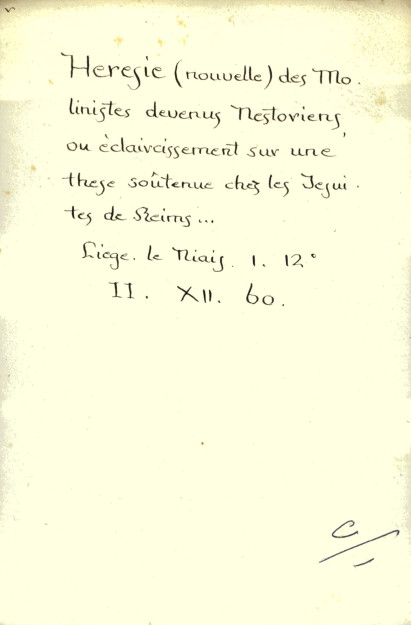 Heresie (nouvelle) des Mo.
linistes devenus Nestoriens,
ou èclaircissement sur une
these soûtenue chez les Jesui.
tes de Reims...
Liege. le Niais. 1. 12°
II. XII. 60.
C